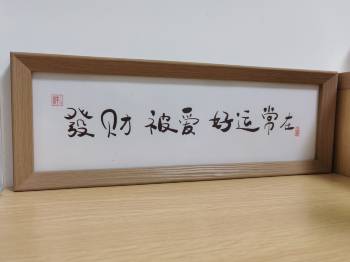 發财 被愛 好运常在